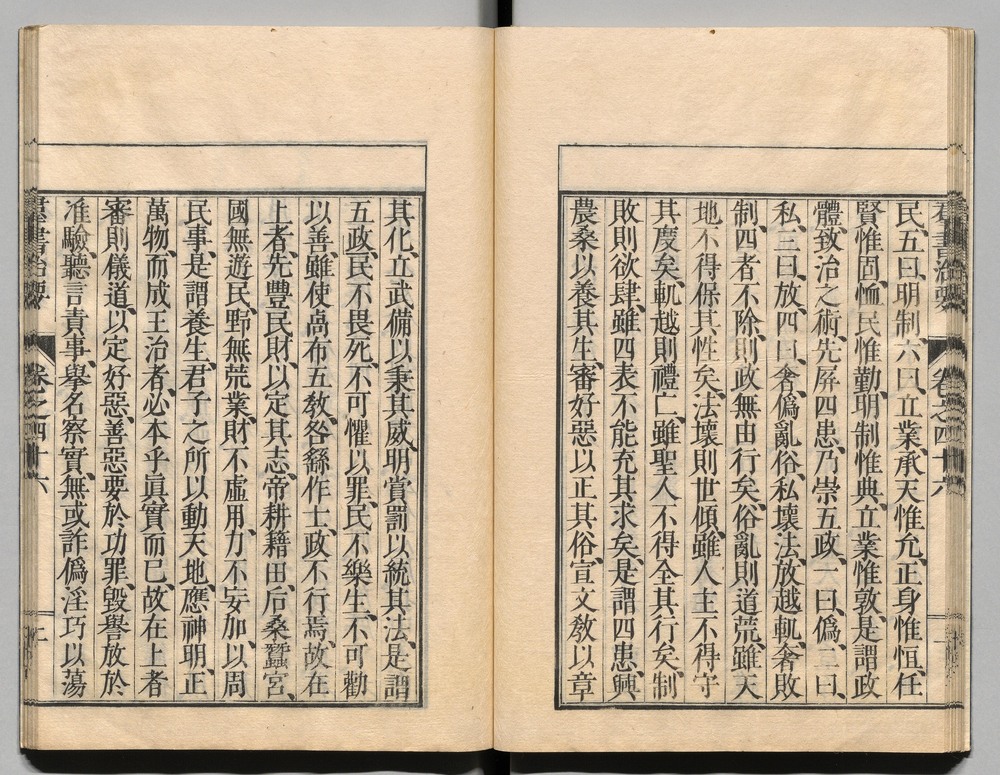 民、五曰、明制六曰、立業承天惟允、正身惟恒、任
賢惟固、恤民惟勤、明制惟典、立業惟敦、是謂政
體、致治之術、先屏四患、乃崇五政、一曰、偽、二曰、
私、三曰、放、四曰、奢、偽亂俗、私壞法、放越軌、奢敗
制、四者不除、則政無由行矣、俗亂則道荒、雖天
地不得保其性矣、法壞則世傾、雖人主不得守
其度矣、軌越則禮亡、雖聖人不得全其行矣、制
敗則欲肆、雖四表不能充其求矣、是謂四患、興
農桑以養其生、審好惡以正其俗、宣文教以章
其化、立武備以秉其威、明賞罰以統其法、是謂
五政、民不畏死、不可懼以罪、民不樂生、不可勸
以善、雖使卨布五教、咎繇作士、政不行焉、故在
上者、先豐民財、以定其志、帝耕籍田、后桑蠶宮、
國無遊民、野無荒業、財不虛用、力不妄加、以周
民事、是謂養生、君子之所以動天地、應神明、正
萬物、而成王治者、必本乎真實而已、故在上者
審則儀道、以定好惡、善惡要於功罪、毀譽放於
准驗、聽言責事、舉名察實、無或詐偽淫巧以蕩
羣書治要 卷之四十六 二